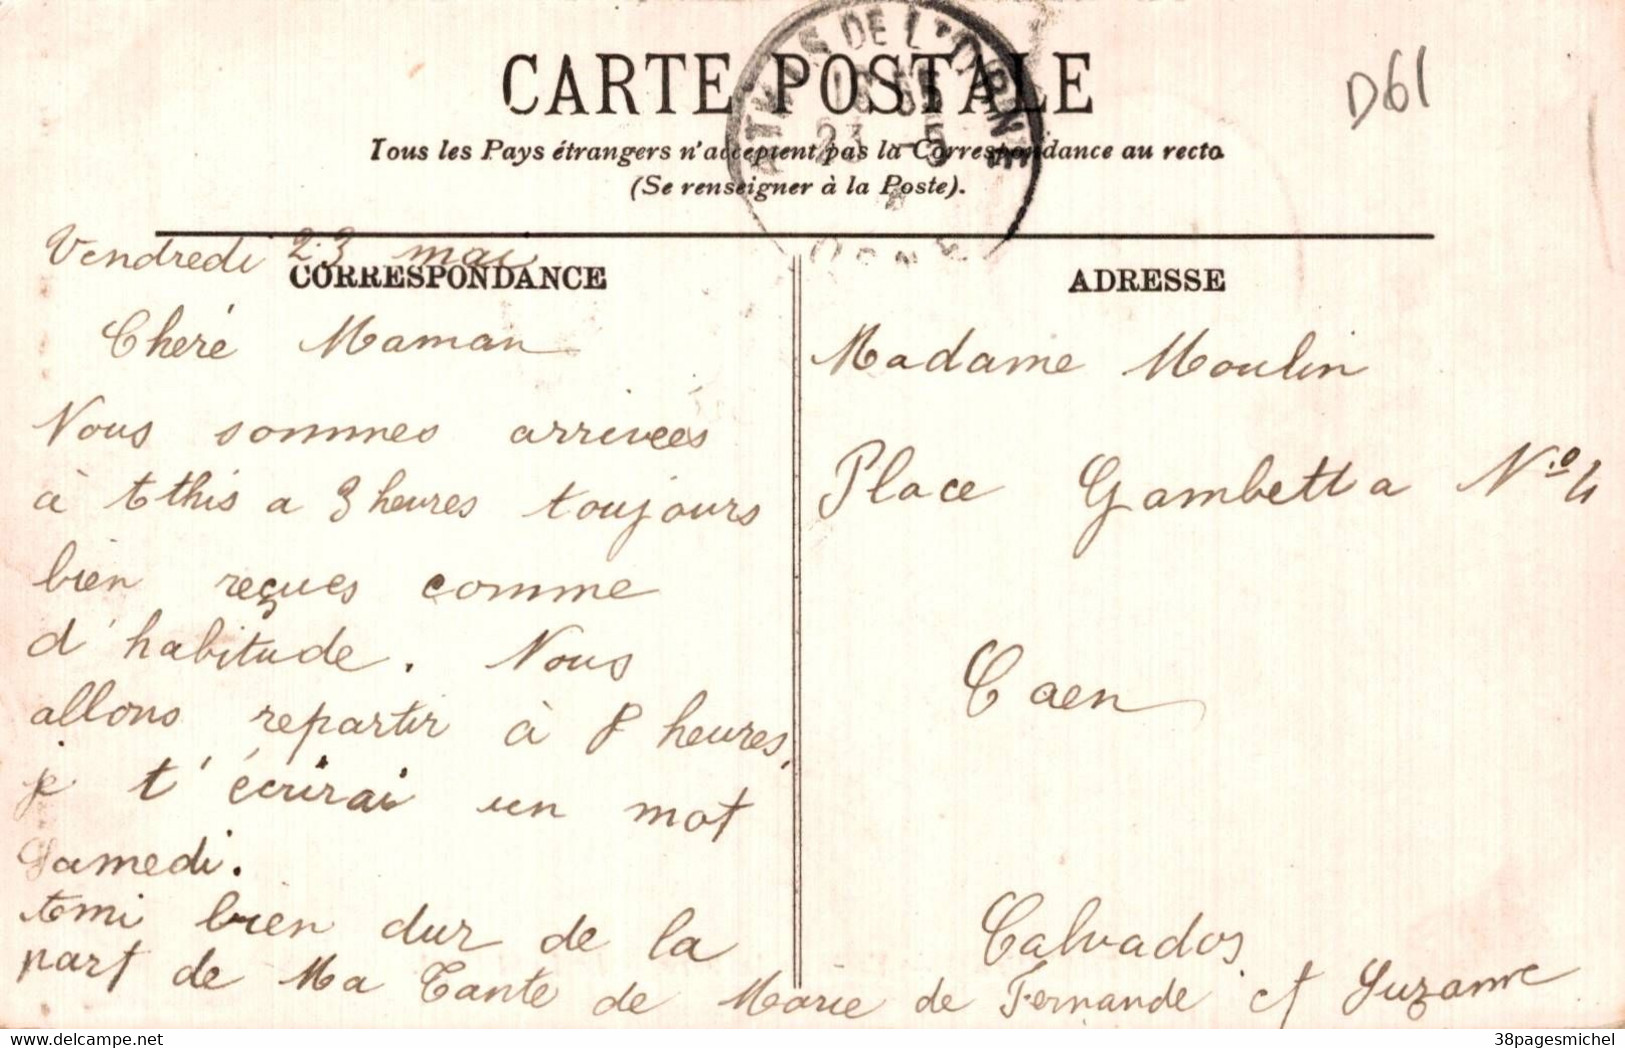 CARTE POSTALE
D61
Tous les Pays étrangers n'acceptent pas la Correspondance au recto
(Se renseigner à la Poste).
DE L'ORNE
23 -5
ORNE
Vendredi 23 mai
CORRESPONDANCE
Cheré Maman
Nous sommes arrivées
à tthis a 3 heures toujours
bien reçues comme
d'habitude. Nous
allons repartir à 8 heures,
je t'écrirai un mot
Samedi.
bien dur de la
part de Ma Tante de Marie de Fernande et Suzanne
ADRESSE
Madame Moulin
Place Gambetta N.o 4
Caen
Calvados
38pagesmichel